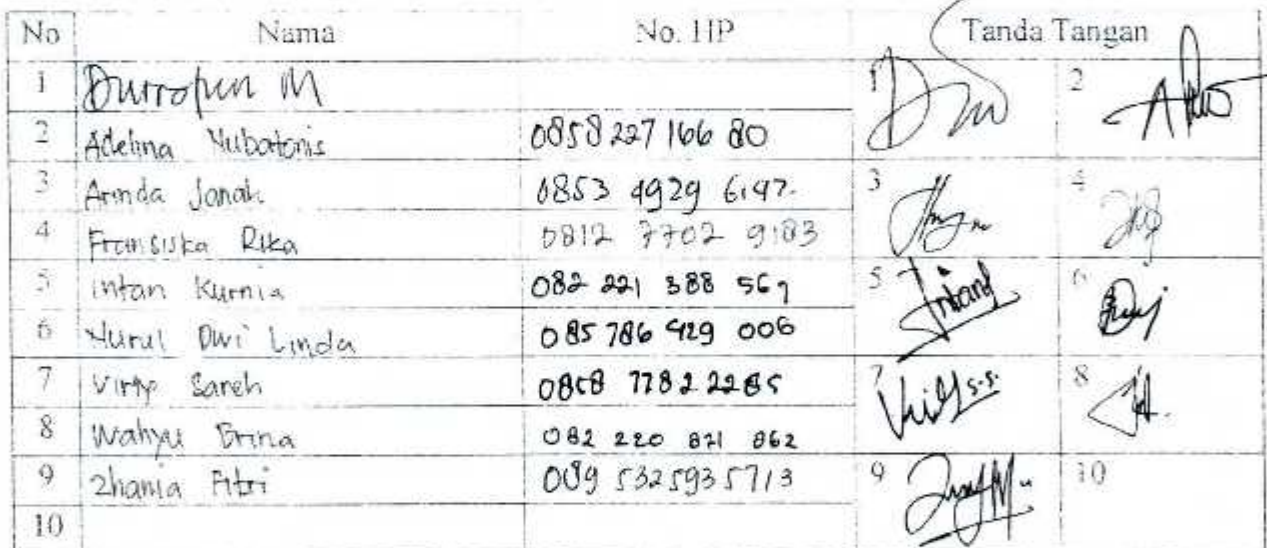 No Nama No. HP Tanda Tangan
1 Durrotun M 1 2
2 Adelina Nubatonis 0858 227 166 80
3 Arinda Janah 0853 4929 6147 3 4
4 Fransiska Rika 0812 7702 9183
5 Intan Kurnia 082 221 388 567 5 6
6 Nurul Dwi Linda 085 786 429 006
7 Sareh 0858 7782 2285 7 8
8 Wahyu Erina 082 220 821 862
9 Zhania Fitri 089 5325935713 9 10
10